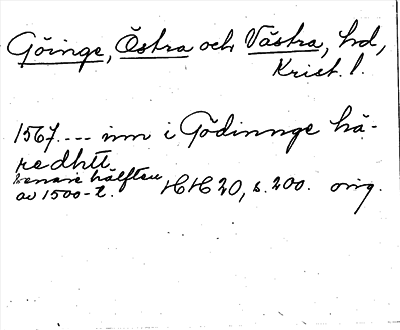 Göinge, Östra och Västra, hd,
Krist. l.
1567 ---- inn i Gödinnge hä-
redhtt
senare hälften
av 1500-t. HH 20, s. 200. orig.